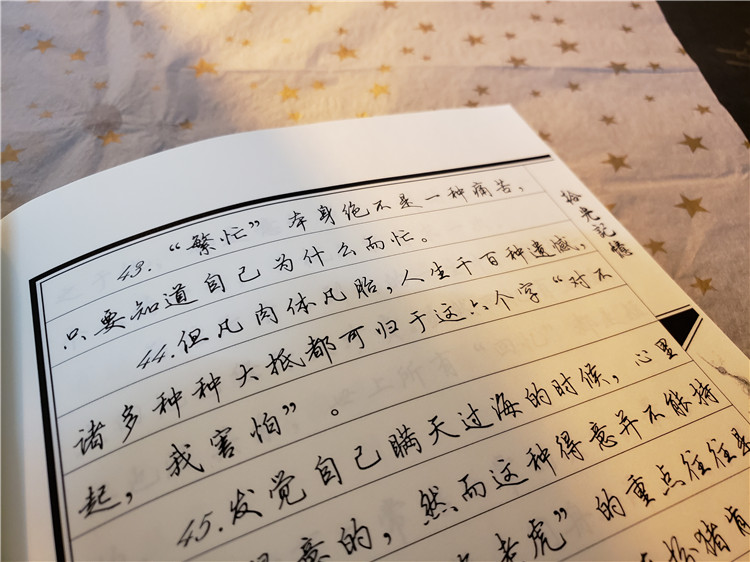 43. “繁忙” 本身绝不是一种痛苦，
只要知道自己为什么而忙。
44. 但凡肉体凡胎，人生千百种遗憾，
诸多种种大抵都可归于这六个字“对不
起，我害怕”。
45. 发觉自己瞒天过海的时候，心里
意的，然而这种得意并不能持
老虎”的重点往往是
猪肯
拾光记憶